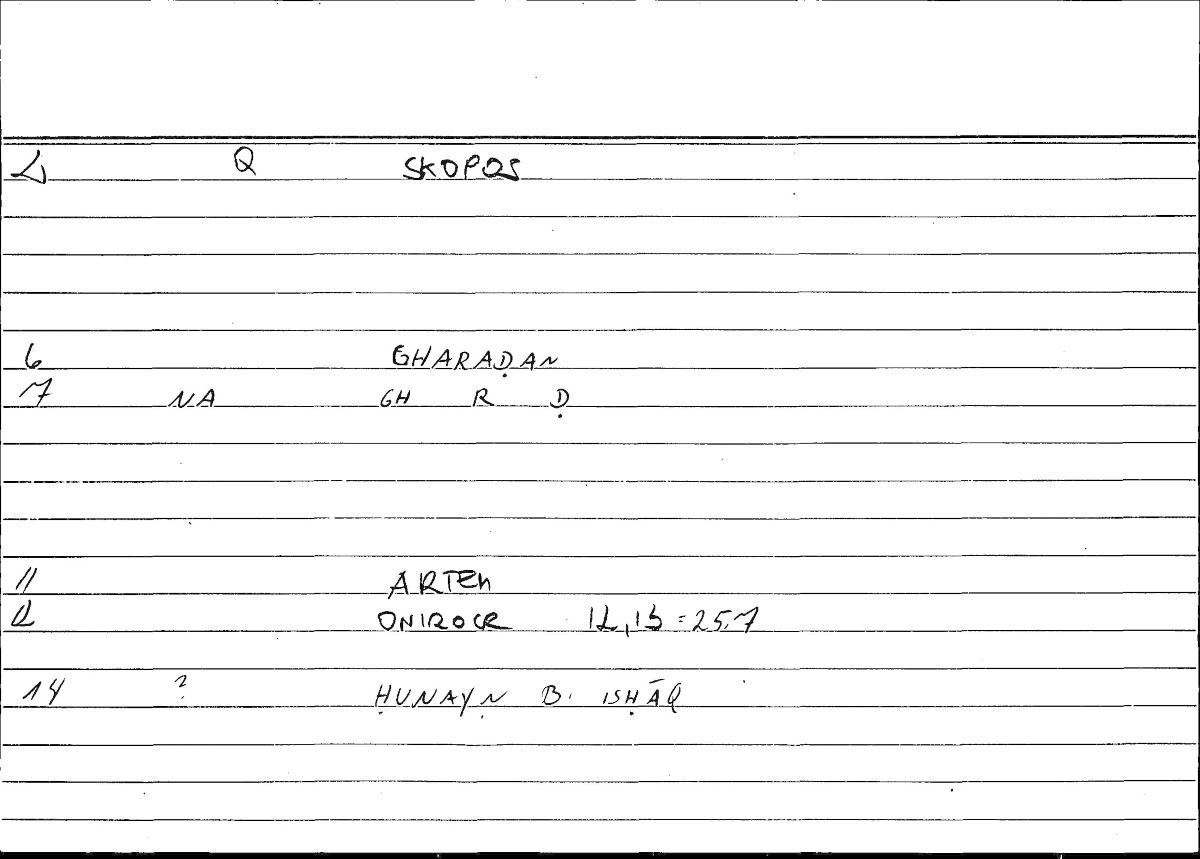 Q SKOPOS
6 GHARAḌAN
7 NA GH R Ḍ
11 ARTEM
12 ONIROCR 12,13=25.7
14 ? ḤUNAYN B. ISḤĀQ